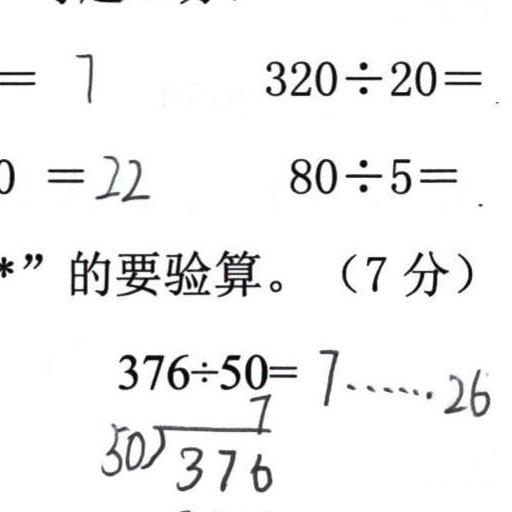 = 7 320÷20=
0 =22 80÷5=
*”的要验算。（7 分）
376÷50= 7……26
7
50)376